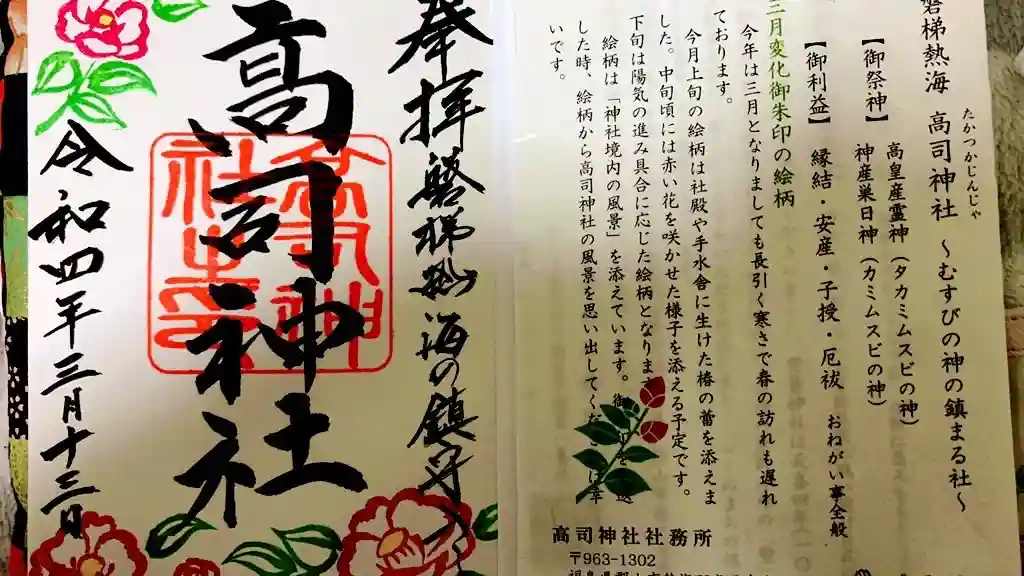 奉拝 磐梯熱海の鎮守
高司神社
令和四年三月十三日
磐梯熱海 高司神社 ~むすびの神の鎮まる社~
たかつかじんじゃ
【御祭神】 高皇産霊神(タカミムスビの神)
神産巣日神(カミムスビの神)
【御利益】 縁結・安産・子授・厄祓 おねがい事全般
三月変化御朱印の絵柄
今年は三月となりましても長引く寒さで春の訪れも遅れ
ております。
今月上旬の絵柄は社殿や手水舎に生けた椿の蕾を添えま
した。中旬頃には赤い花を咲かせた様子を添える予定です。
下旬は陽気の進み具合に応じた絵柄となりま
絵柄は「神社境内の風景」を添えています。御
した時、絵柄から高司神社の風景を思い出してくだ
いです。
高司神社社務所
〒963-1302